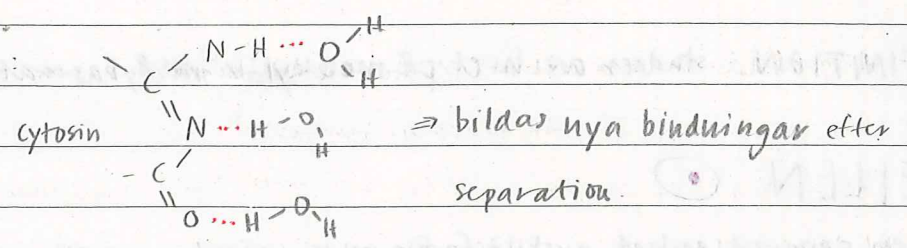 N-H ... O-H
H
C
cytosin N ... H-O
H
⇒ bildas nya bindningar efter
- C
separation.
O ... H-O
H